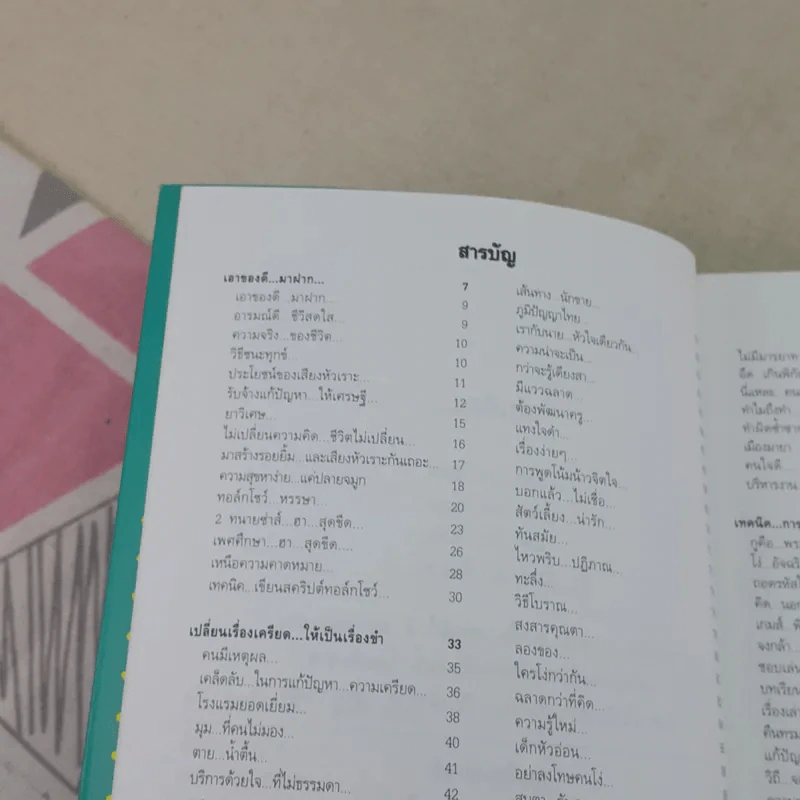 สารบัญ
เอาของดี...มาฝาก... 7
เอาของดี...มาฝาก... 9
อารมณ์ดี...ชีวีสดใส... 9
ความจริง...ของชีวิต... 10
วิธีชนะทุกข์... 10
ประโยชน์ของเสียงหัวเราะ... 11
รับจ้างแก้ปัญหา...ให้เศรษฐี... 12
ยาวิเศษ... 15
ไม่เปลี่ยนความคิด...ชีวิตไม่เปลี่ยน... 16
มาสร้างรอยยิ้ม...และเสียงหัวเราะกันเถอะ... 17
ความสุขหาง่าย...แค่ปลายจมูก 18
ทอล์กโชว์...หรรษา... 20
2 ทนายซ่าส์...ฮา...สุดขีด... 23
เพศศึกษา...ฮา...สุดขีด.... 26
เหนือความคาดหมาย... 28
เทคนิค...เขียนสคริปต์ทอล์กโชว์... 30
เปลี่ยนเรื่องเครียด...ให้เป็นเรื่องขำ 33
คนมีเหตุผล... 35
เคล็ดลับ...ในการแก้ปัญหา...ความเครียด... 36
โรงแรมยอดเยี่ยม... 38
มุม...ที่คนไม่มอง... 40
ตาย...น้ำตื้น... 41
บริการด้วยใจ...ที่ไม่ธรรมดา... 42
เส้นทาง...นักขาย...
ภูมิปัญญาไทย...
เรากับนาย...หัวใจเดียวกัน
ความน่าจะเป็น...
กว่าจะรู้เดียงสา...
มีแววฉลาด...
ต้องพัฒนาครู...
แทงใจดำ...
เรื่องง่ายๆ...
การพูดโน้มน้าวจิตใจ...
บอกแล้ว...ไม่เชื่อ...
สัตว์เลี้ยง...น่ารัก...
ทันสมัย...
ไหวพริบ...ปฏิภาณ...
ทะลึ่ง...
วิธีโบราณ...
สงสารคุณตา...
ลองของ...
ใครโง่กว่ากัน...
ฉลาดกว่าที่คิด...
ความรู้ใหม่...
เด็กหัวอ่อน...
อย่าลงโทษคนโง่...
ไม่มีมารยาท
อึด เกินพิกั
ทำไมถึงทำ
ทำผิดซ้ำซา
เมืองมายา
คนใจดี...
บริหารงาน
เทคนิค...การ
กูคือ...พระ
โง่...อัจฉริ
ถอดรหัส
คิด นอก
เกมส์
จงกล้า...
ชอบเล่น
บทเรียน
เรื่องเล่า
คืนทรม
แก้ปัญ
วิถี...จ